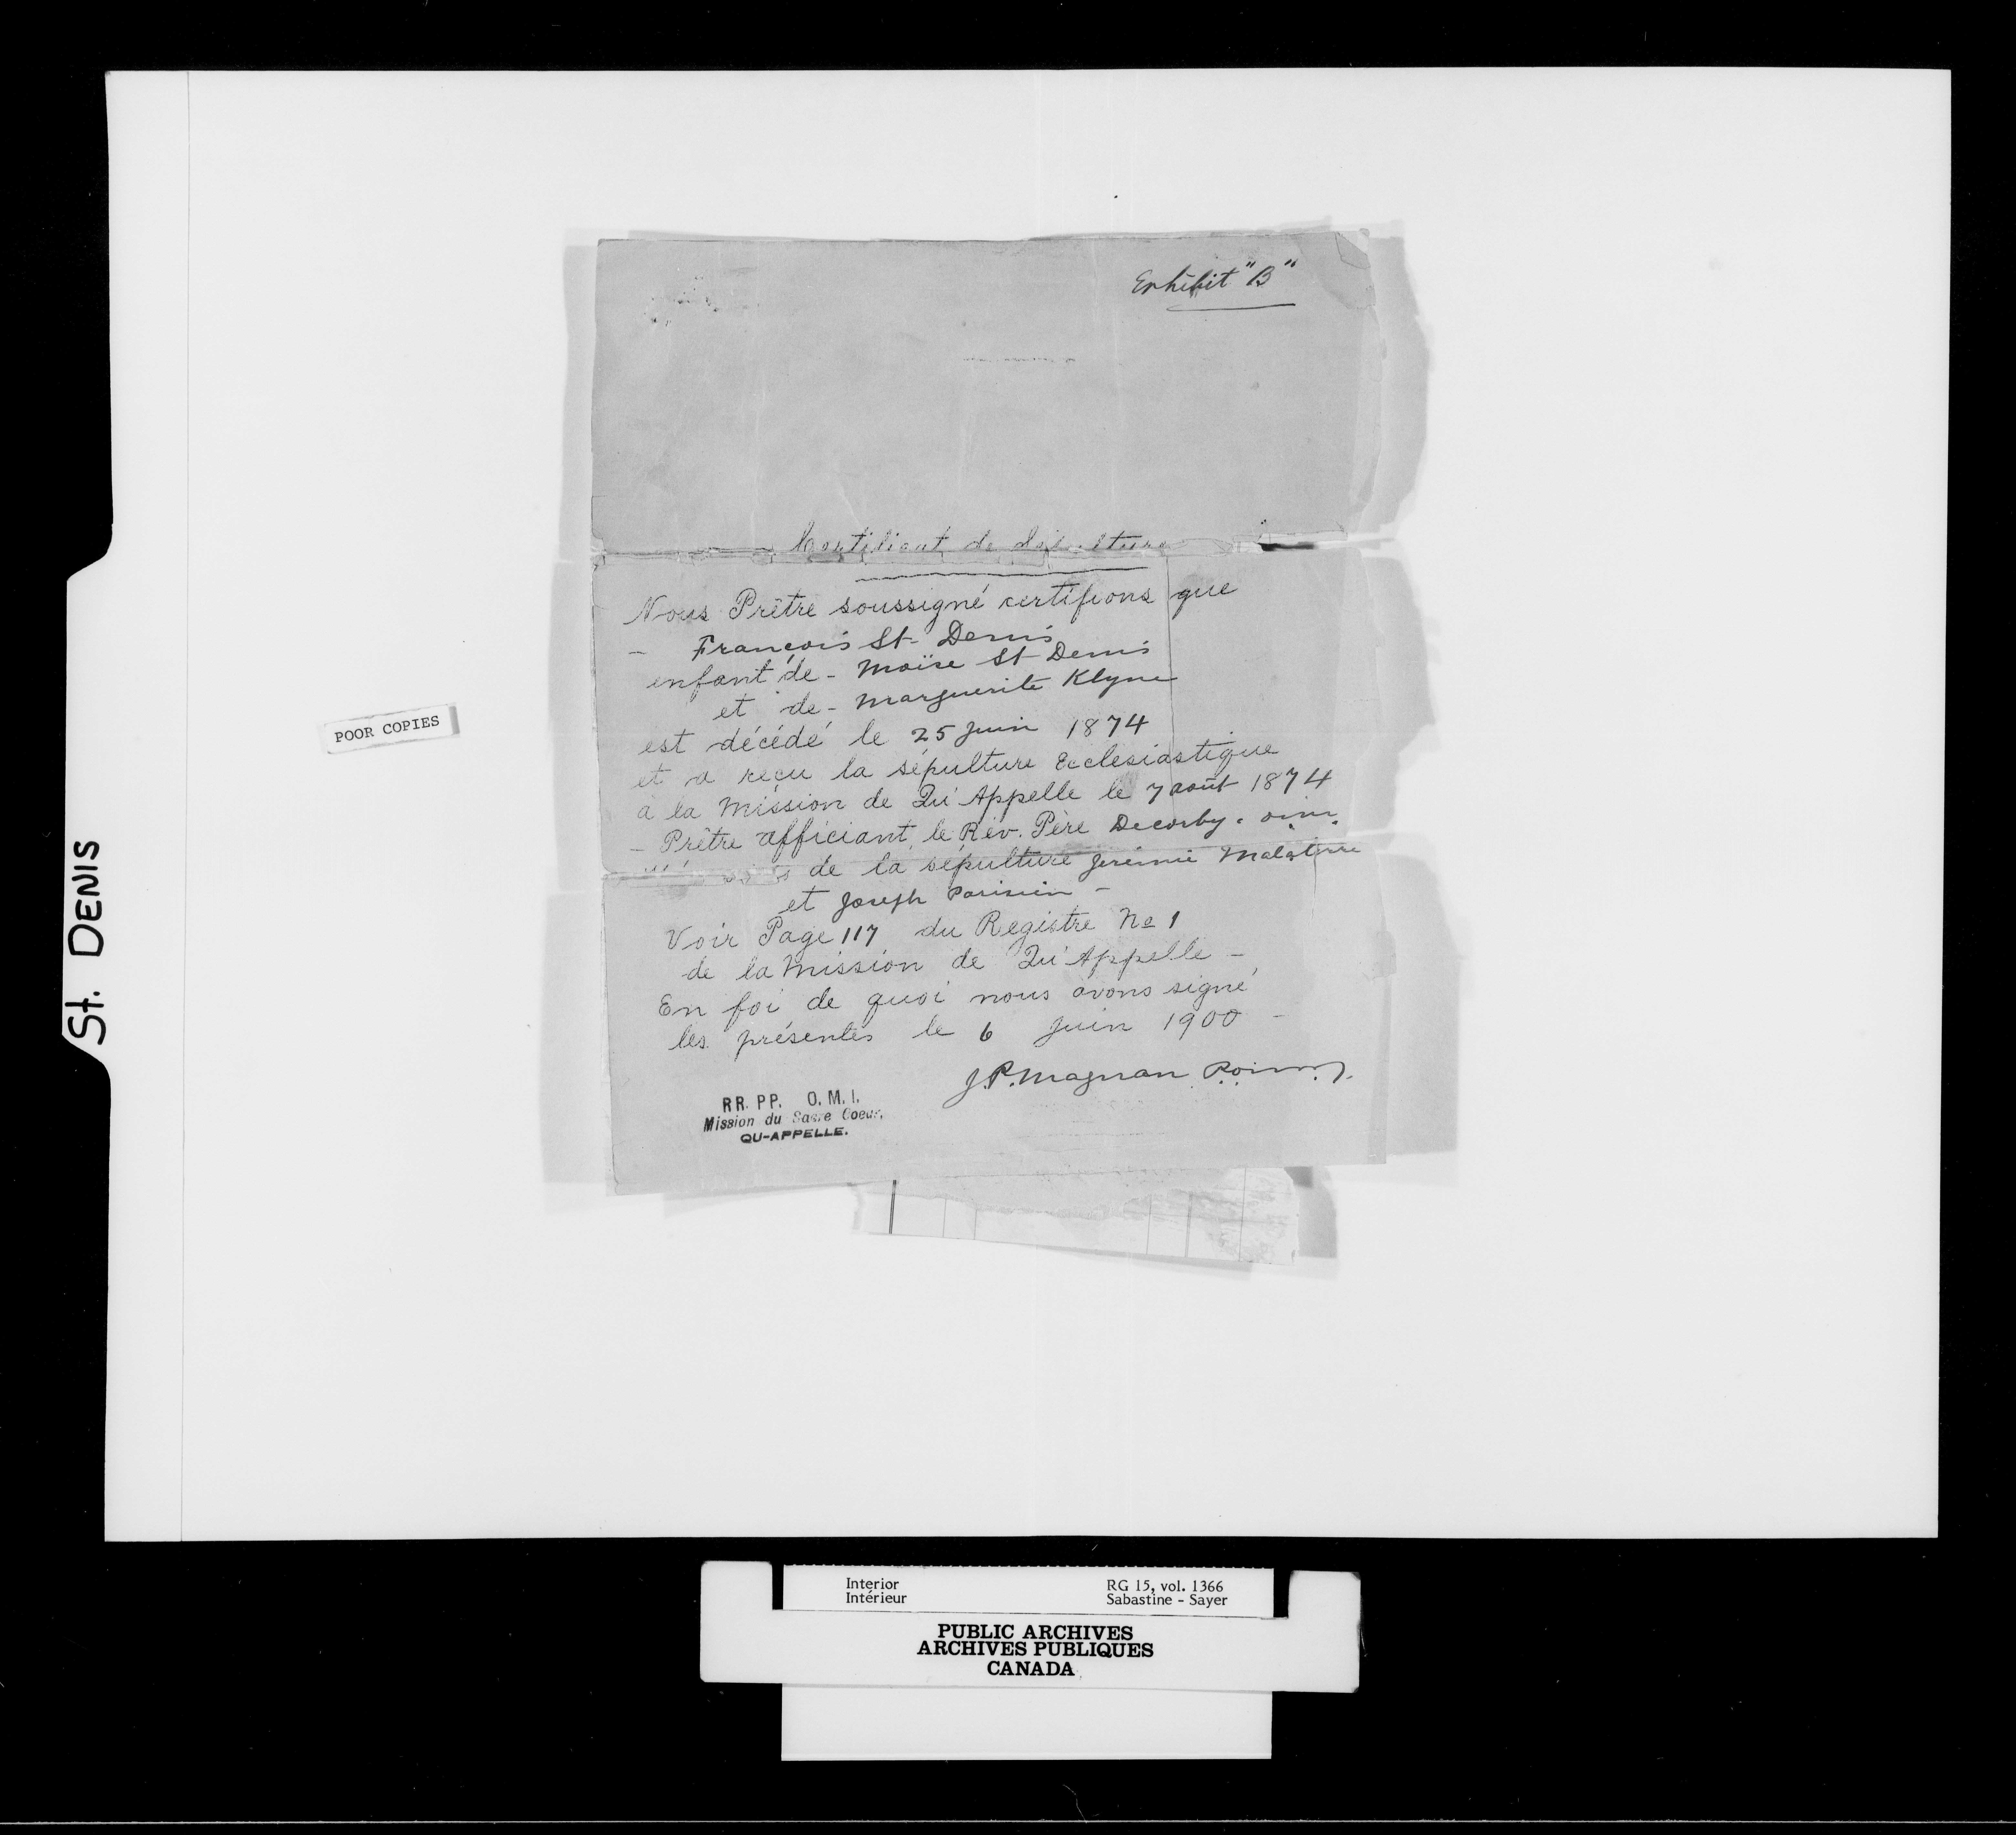 Exhibit "B"
Certificat de Sépulture
Nous Prêtre soussigné certifions que
- François St-Denis
enfant de - Moïse St-Denis
et de - Marguerite Klyne
est décédé le 25 Juin 1874
et a reçu la sépulture Ecclesiastique
à la Mission de Qu'Appelle le 7 août 1874
- Prêtre officiant, le Rév. Père Decorby. o.m.i.
de la sépulture Jérémie Malaterre
et Joseph Parisien -
Voir Page 117 du Registre No 1
de la Mission de Qu'Appelle -
En foi de quoi nous avons signé
les présentes le 6 Juin 1900 -
J.P. Magnan
RR. PP. O. M. I.
Mission du Sacre Coeur,
QU-APPELLE.
POOR COPIES
St. DENIS
Interior RG 15, vol. 1366
Intérieur Sabastine - Sayer
PUBLIC ARCHIVES
ARCHIVES PUBLIQUES
CANADA